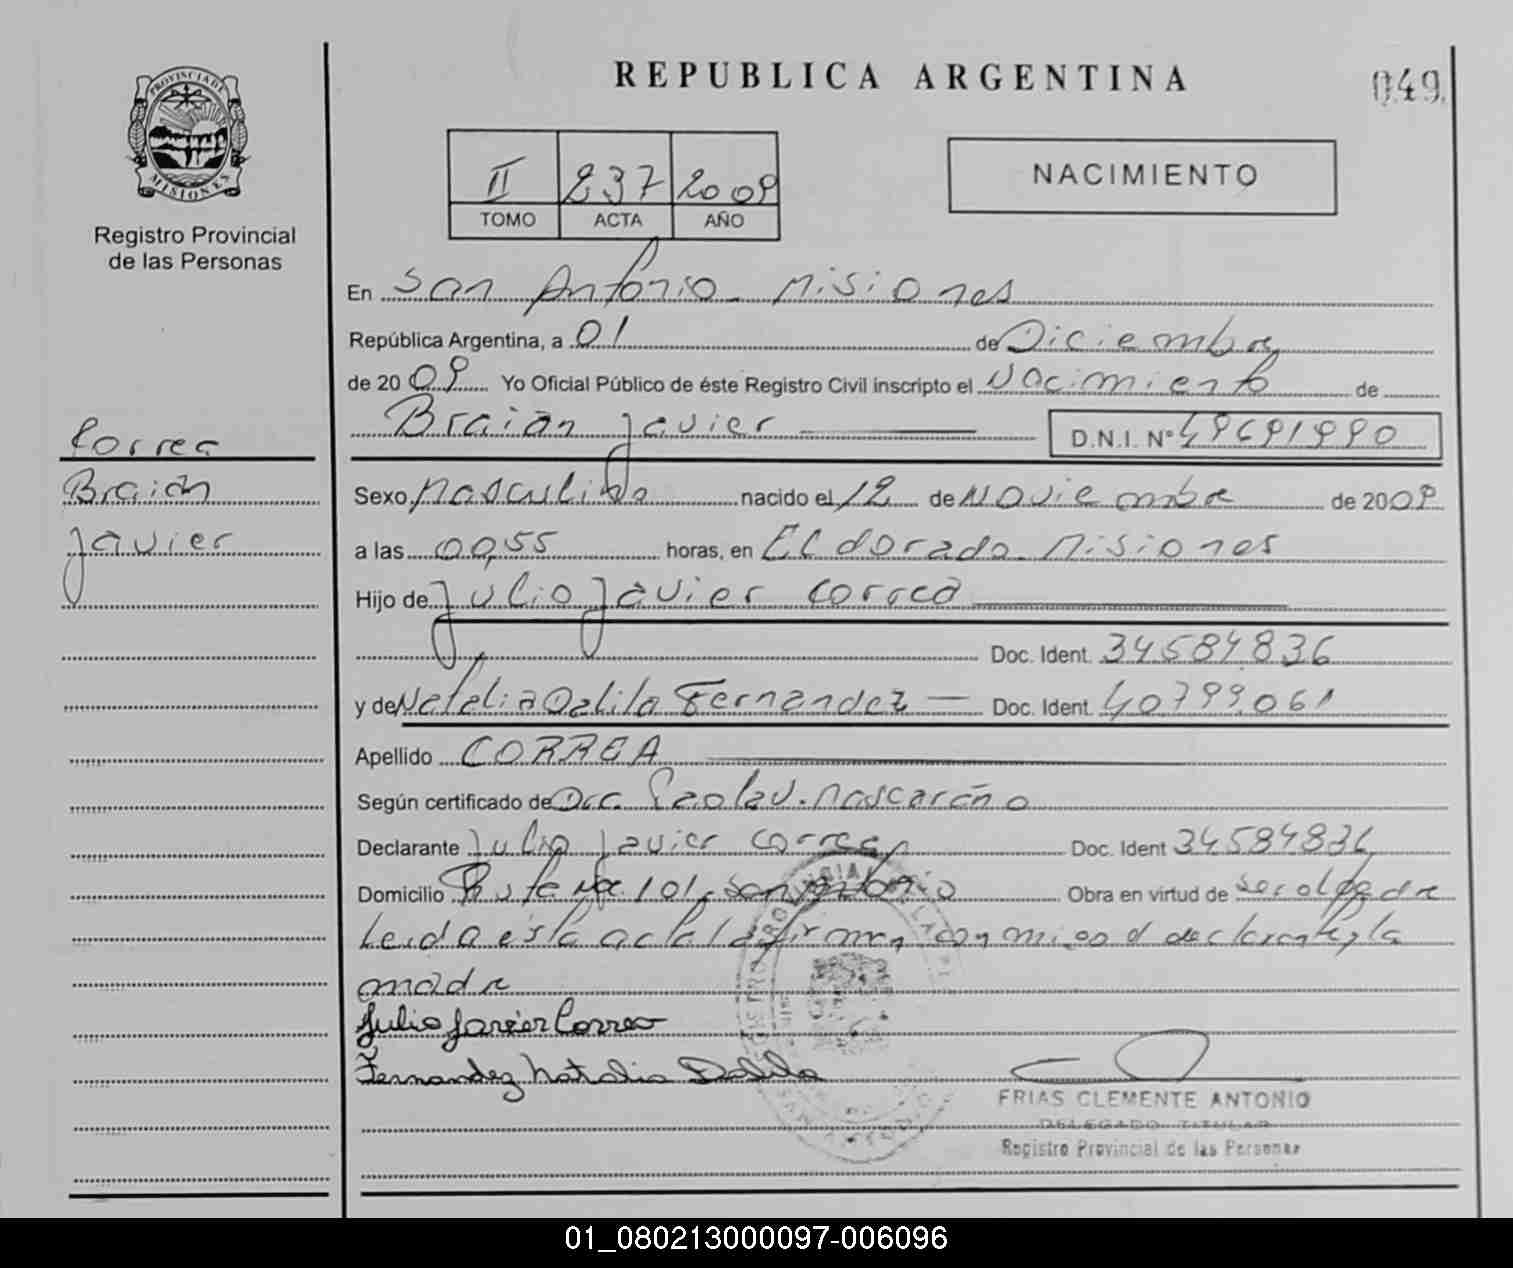 REPUBLICA ARGENTINA
049
PROVINCIA DE
MISIONES
Registro Provincial
de las Personas
II 237 2009
TOMO ACTA AÑO
NACIMIENTO
En San Antonio - Misiones
República Argentina, a 01 de Diciembre
de 20 09 Yo Oficial Público de éste Registro Civil inscripto el Nacimiento de
Braian Javier D.N.I. Nº 49691990
Correa
Braian
Javier
Sexo Masculino nacido el 12 de Noviembre de 2009
a las 00,55 horas, en Eldorado - Misiones
Hijo de Julio Javier Correa
Doc. Ident. 34.584.836
y de Natalia Dalila Fernandez Doc. Ident. 40.799.061
Apellido CORREA
Según certificado de Dra. Paola V. Mascareño
Declarante Julio Javier Correa Doc. Ident 34.584.836
Domicilio Ruta Nac. 101 - San Antonio Obra en virtud de ser el padre
Leida esta acta la firman conmigo el declarante y la
madre
Julio Javier Correa
Fernandez Natalia Dalila
FRIAS CLEMENTE ANTONIO
DELEGADO TITULAR
Registro Provincial de las Personas
01_080213000097-006096